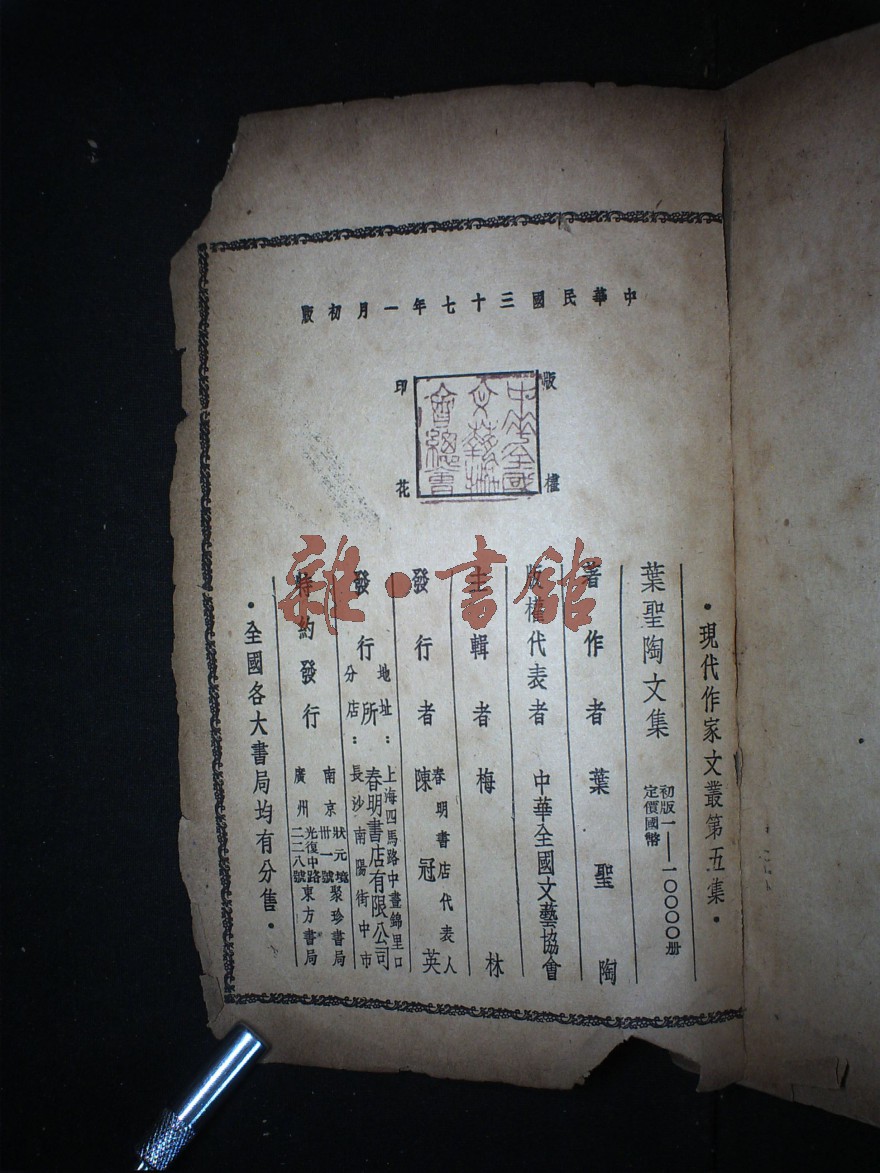 中華民國三十七年一月初版
版權印花
中華全國文藝協會總會
•現代作家文叢第五集•
葉聖陶文集
初版一——一〇〇〇〇册
定價國幣
著作者 葉聖陶
版權代表者 中華全國文藝協會
主輯者 梅林
發行者 春明書店代表人 陳冠英
發行所 春明書店有限公司
地址：上海四馬路中晝錦里口
分店：長沙南陽街中市
特約發行
南京狀元境卅一號聚珍書局
廣州光復中路二二八號東方書局
•全國各大書局均有分售•
雜·書館